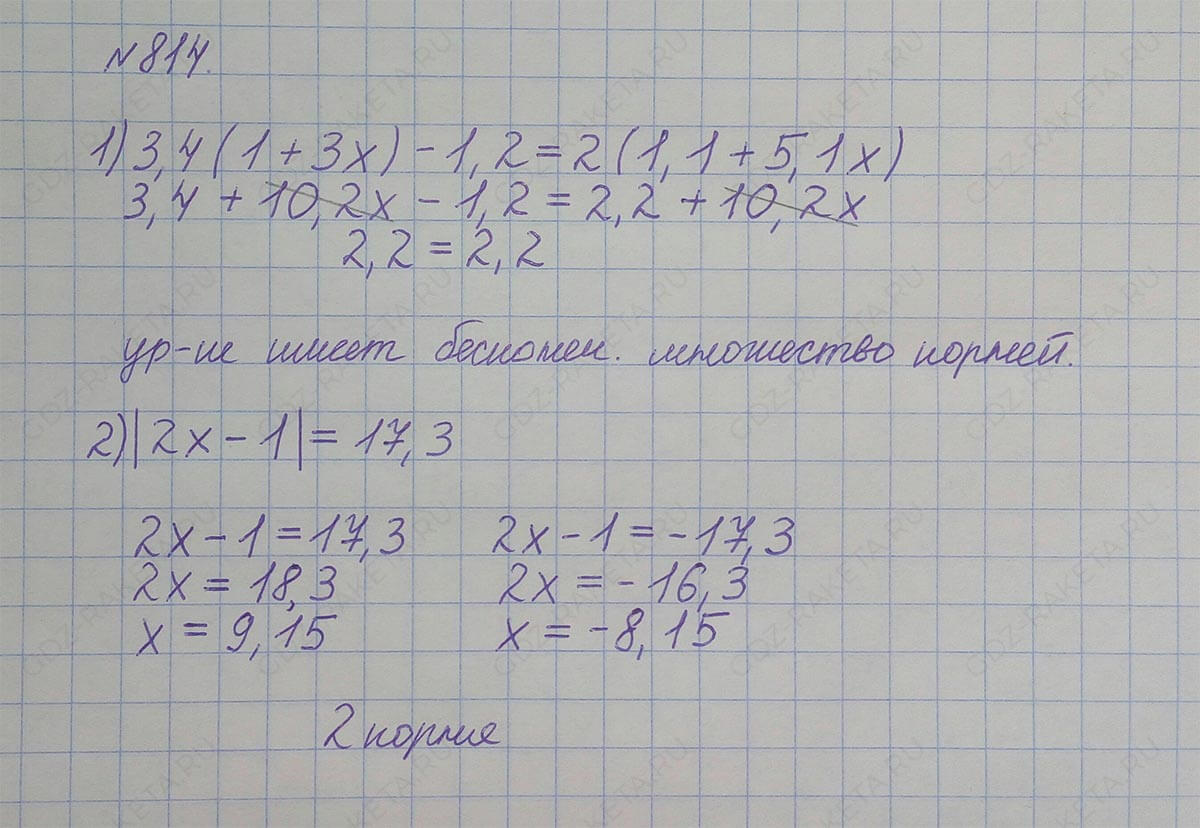 №814.
1) 3,4(1+3x)-1,2=2(1,1+5,1x)
3,4+10,2x-1,2=2,2+10,2x
2,2=2,2
ур-ие имеет бесконеч. множество корней.
2) |2x-1|=17,3
2x-1=17,3 2x-1=-17,3
2x=18,3 2x=-16,3
x=9,15 x=-8,15
2 корня
GDZ-RAKETA.RU